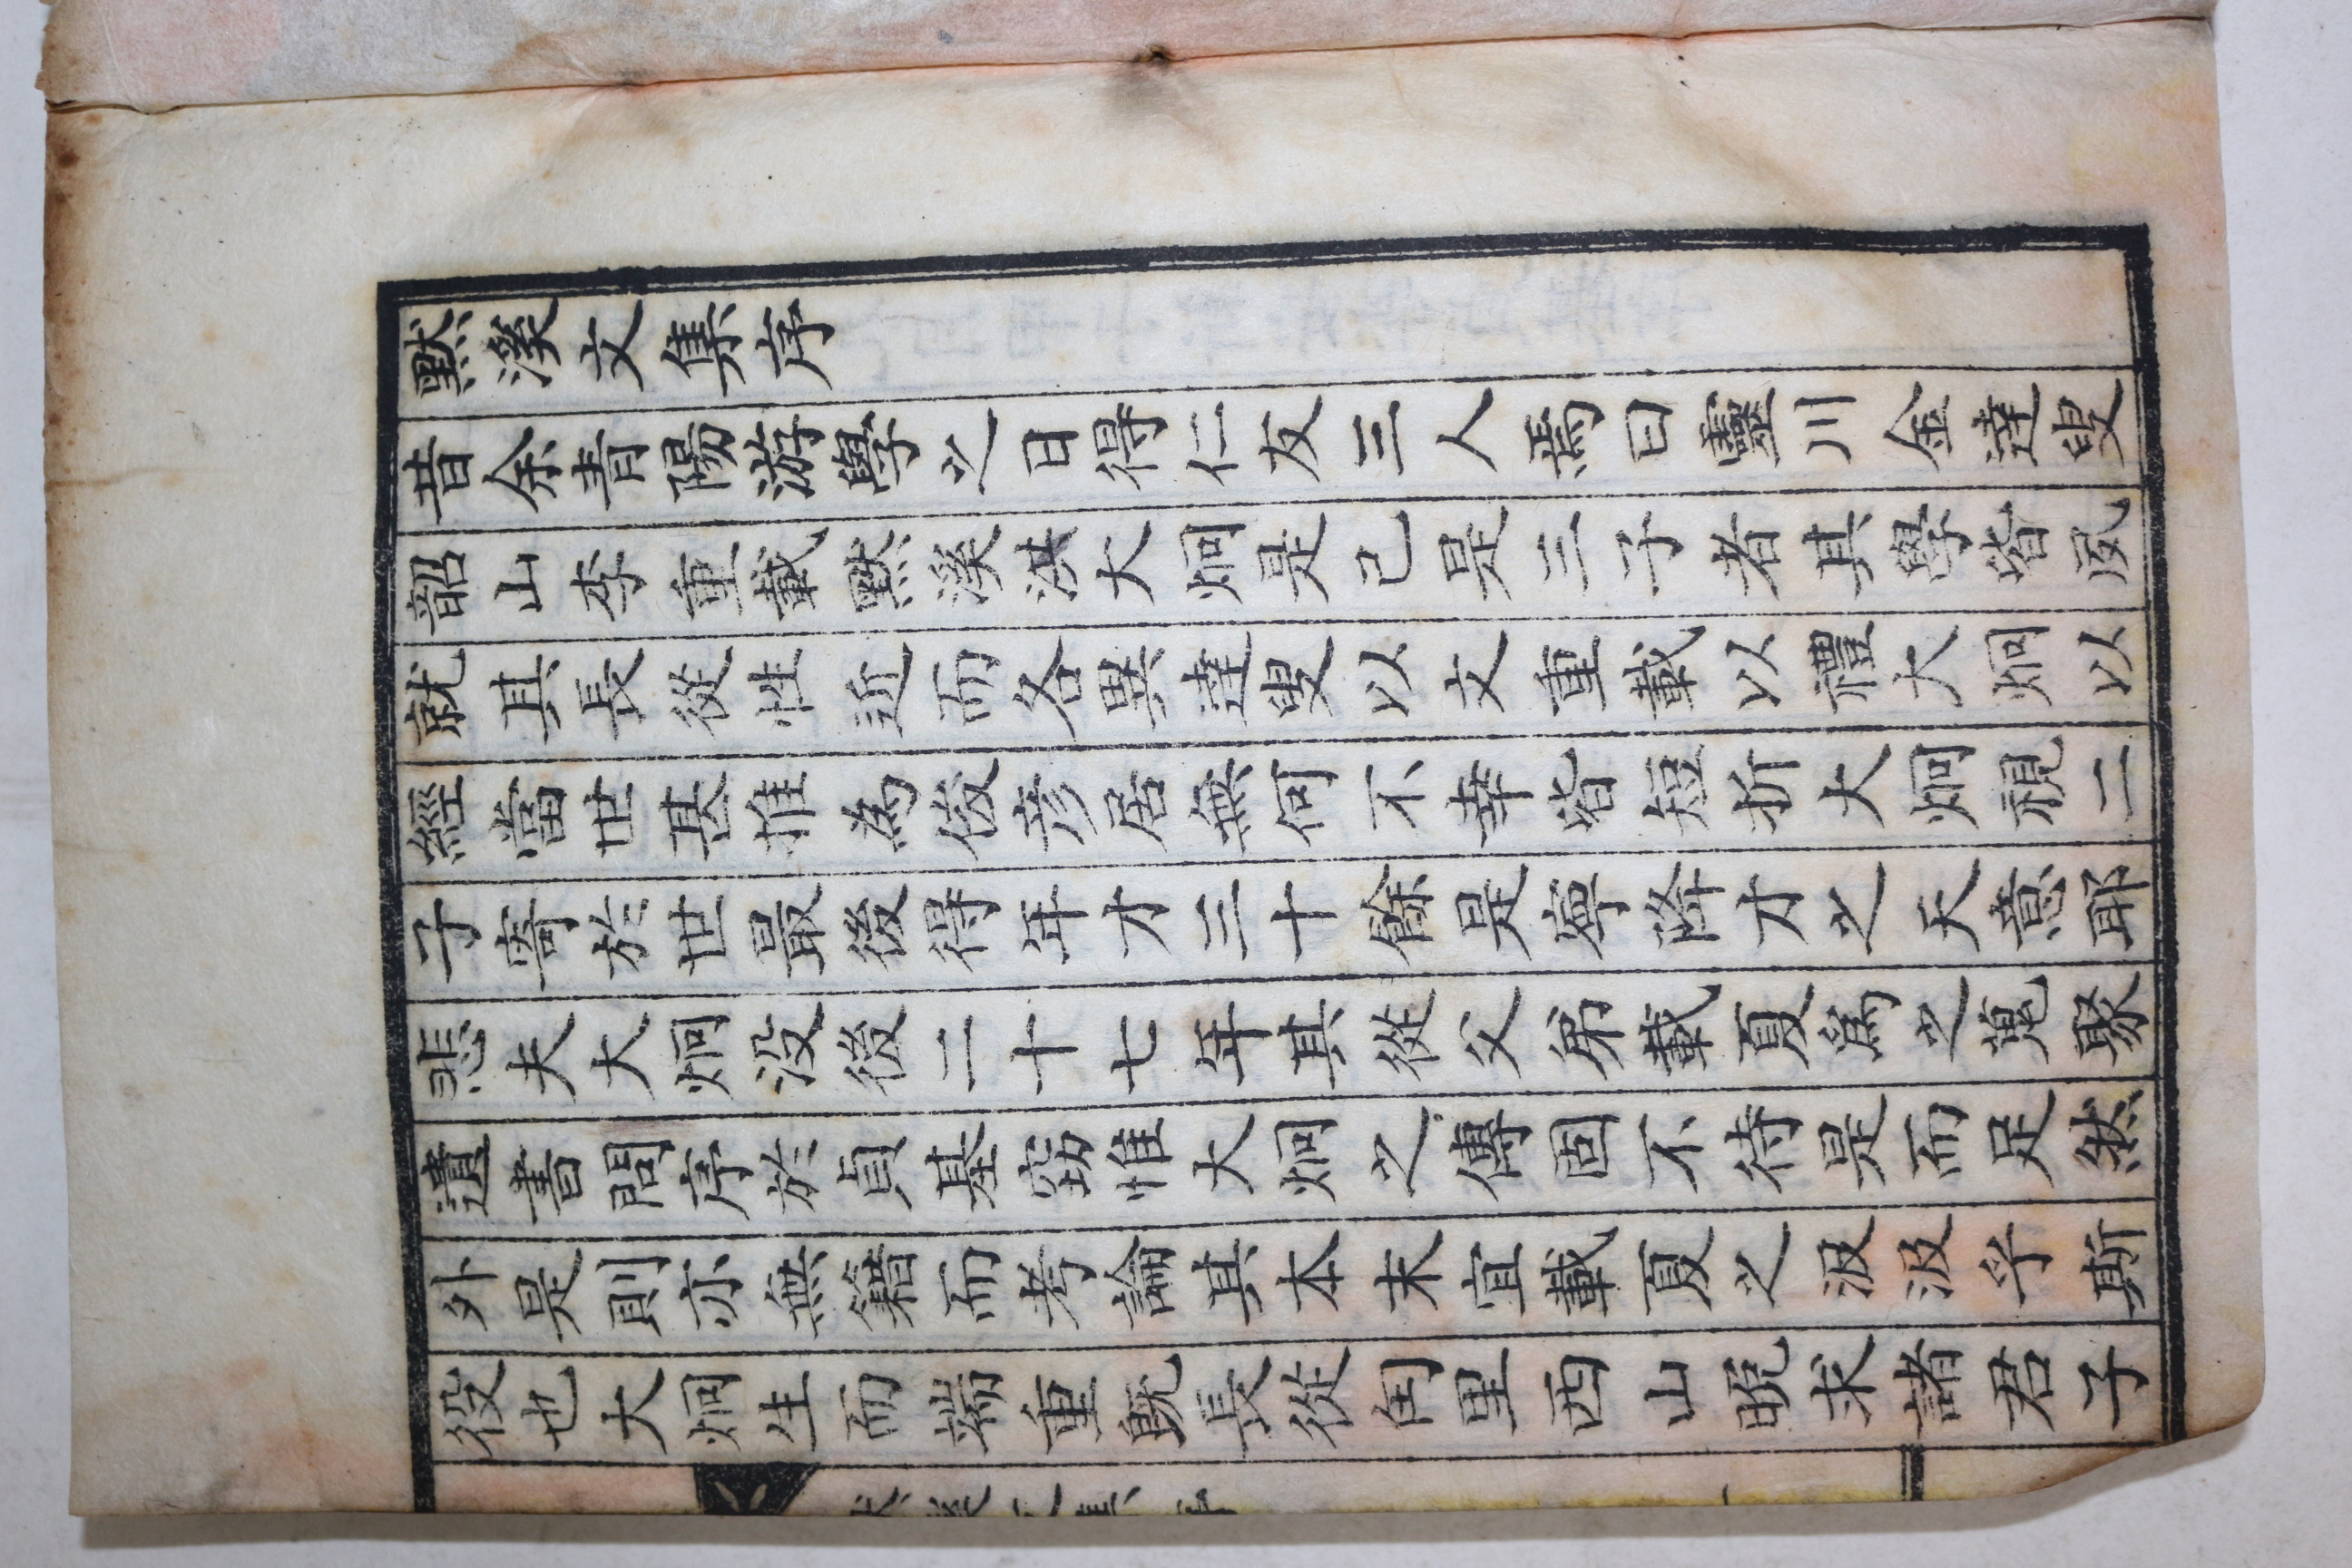 默溪文集序
昔余青陽游學之日得仁友三人焉曰靈川金達叟
韶山李重載默溪洪大炯是已是三子者其學皆夙
就其長從性近而各異達叟以文重載以禮大炯以
經當世甚推為俊彦居無何不幸皆短折大炯視二
子寄於世最後得年才三十餘是寧降才之天意耶
悲夫大炯没後二十七年其從父弟載夏爲之蒐聚
遺書問序於貞基窃惟大炯之傳固不待是而足然
外是則亦無籍而考論其本末宜載夏之汲汲乎斯
役也大炯生而端重既長從匋里西山晩求諸君子